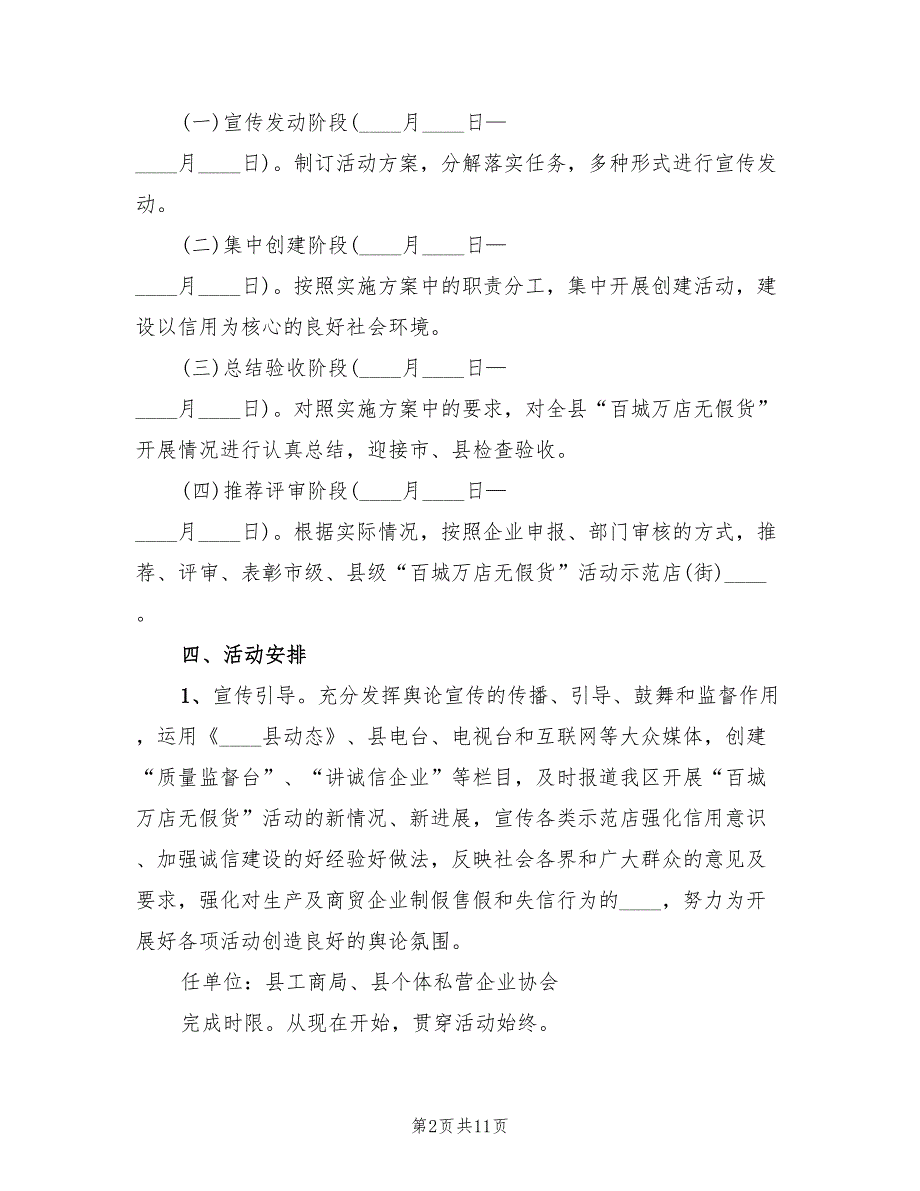 (一)宣传发动阶段(____月____日—
____月____日)。制订活动方案，分解落实任务，多种形式进行宣传发
动。
(二)集中创建阶段(____月____日—
____月____日)。按照实施方案中的职责分工，集中开展创建活动，建
设以信用为核心的良好社会环境。
(三)总结验收阶段(____月____日—
____月____日)。对照实施方案中的要求，对全县“百城万店无假货”
开展情况进行认真总结，迎接市、县检查验收。
(四)推荐评审阶段(____月____日—
____月____日)。根据实际情况，按照企业申报、部门审核的方式，推
荐、评审、表彰市级、县级“百城万店无假货”活动示范店(街)____
。
四、活动安排
1、宣传引导。充分发挥舆论宣传的传播、引导、鼓舞和监督作用
，运用《____县动态》、县电台、电视台和互联网等大众媒体，创建
“质量监督台”、“讲诚信企业”等栏目，及时报道我区开展“百城
万店无假货”活动的新情况、新进展，宣传各类示范店强化信用意识
、加强诚信建设的好经验好做法，反映社会各界和广大群众的意见及
要求，强化对生产及商贸企业制假售假和失信行为的____，努力为开
展好各项活动创造良好的舆论氛围。
任单位：县工商局、县个体私营企业协会
完成时限。从现在开始，贯穿活动始终。
第2页共11页